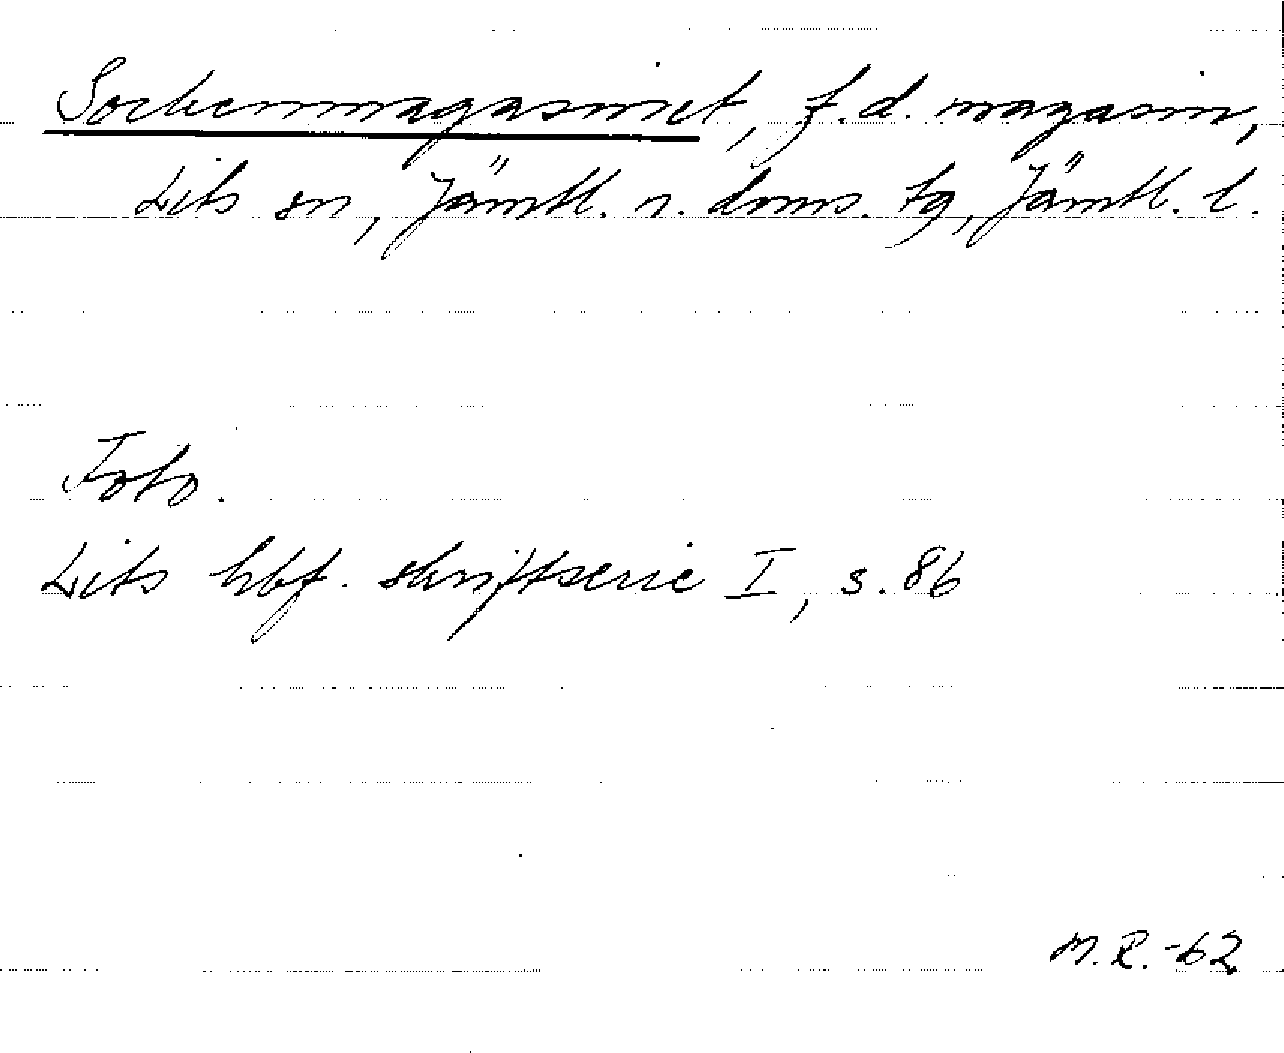 Sockenmagasinet, f.d. magasin,
Lits sn, Jämtl. n. doms. tg, Jämtl. l.
Foto.
Lits hbf. skriftserie I, s. 86
M.R. -62